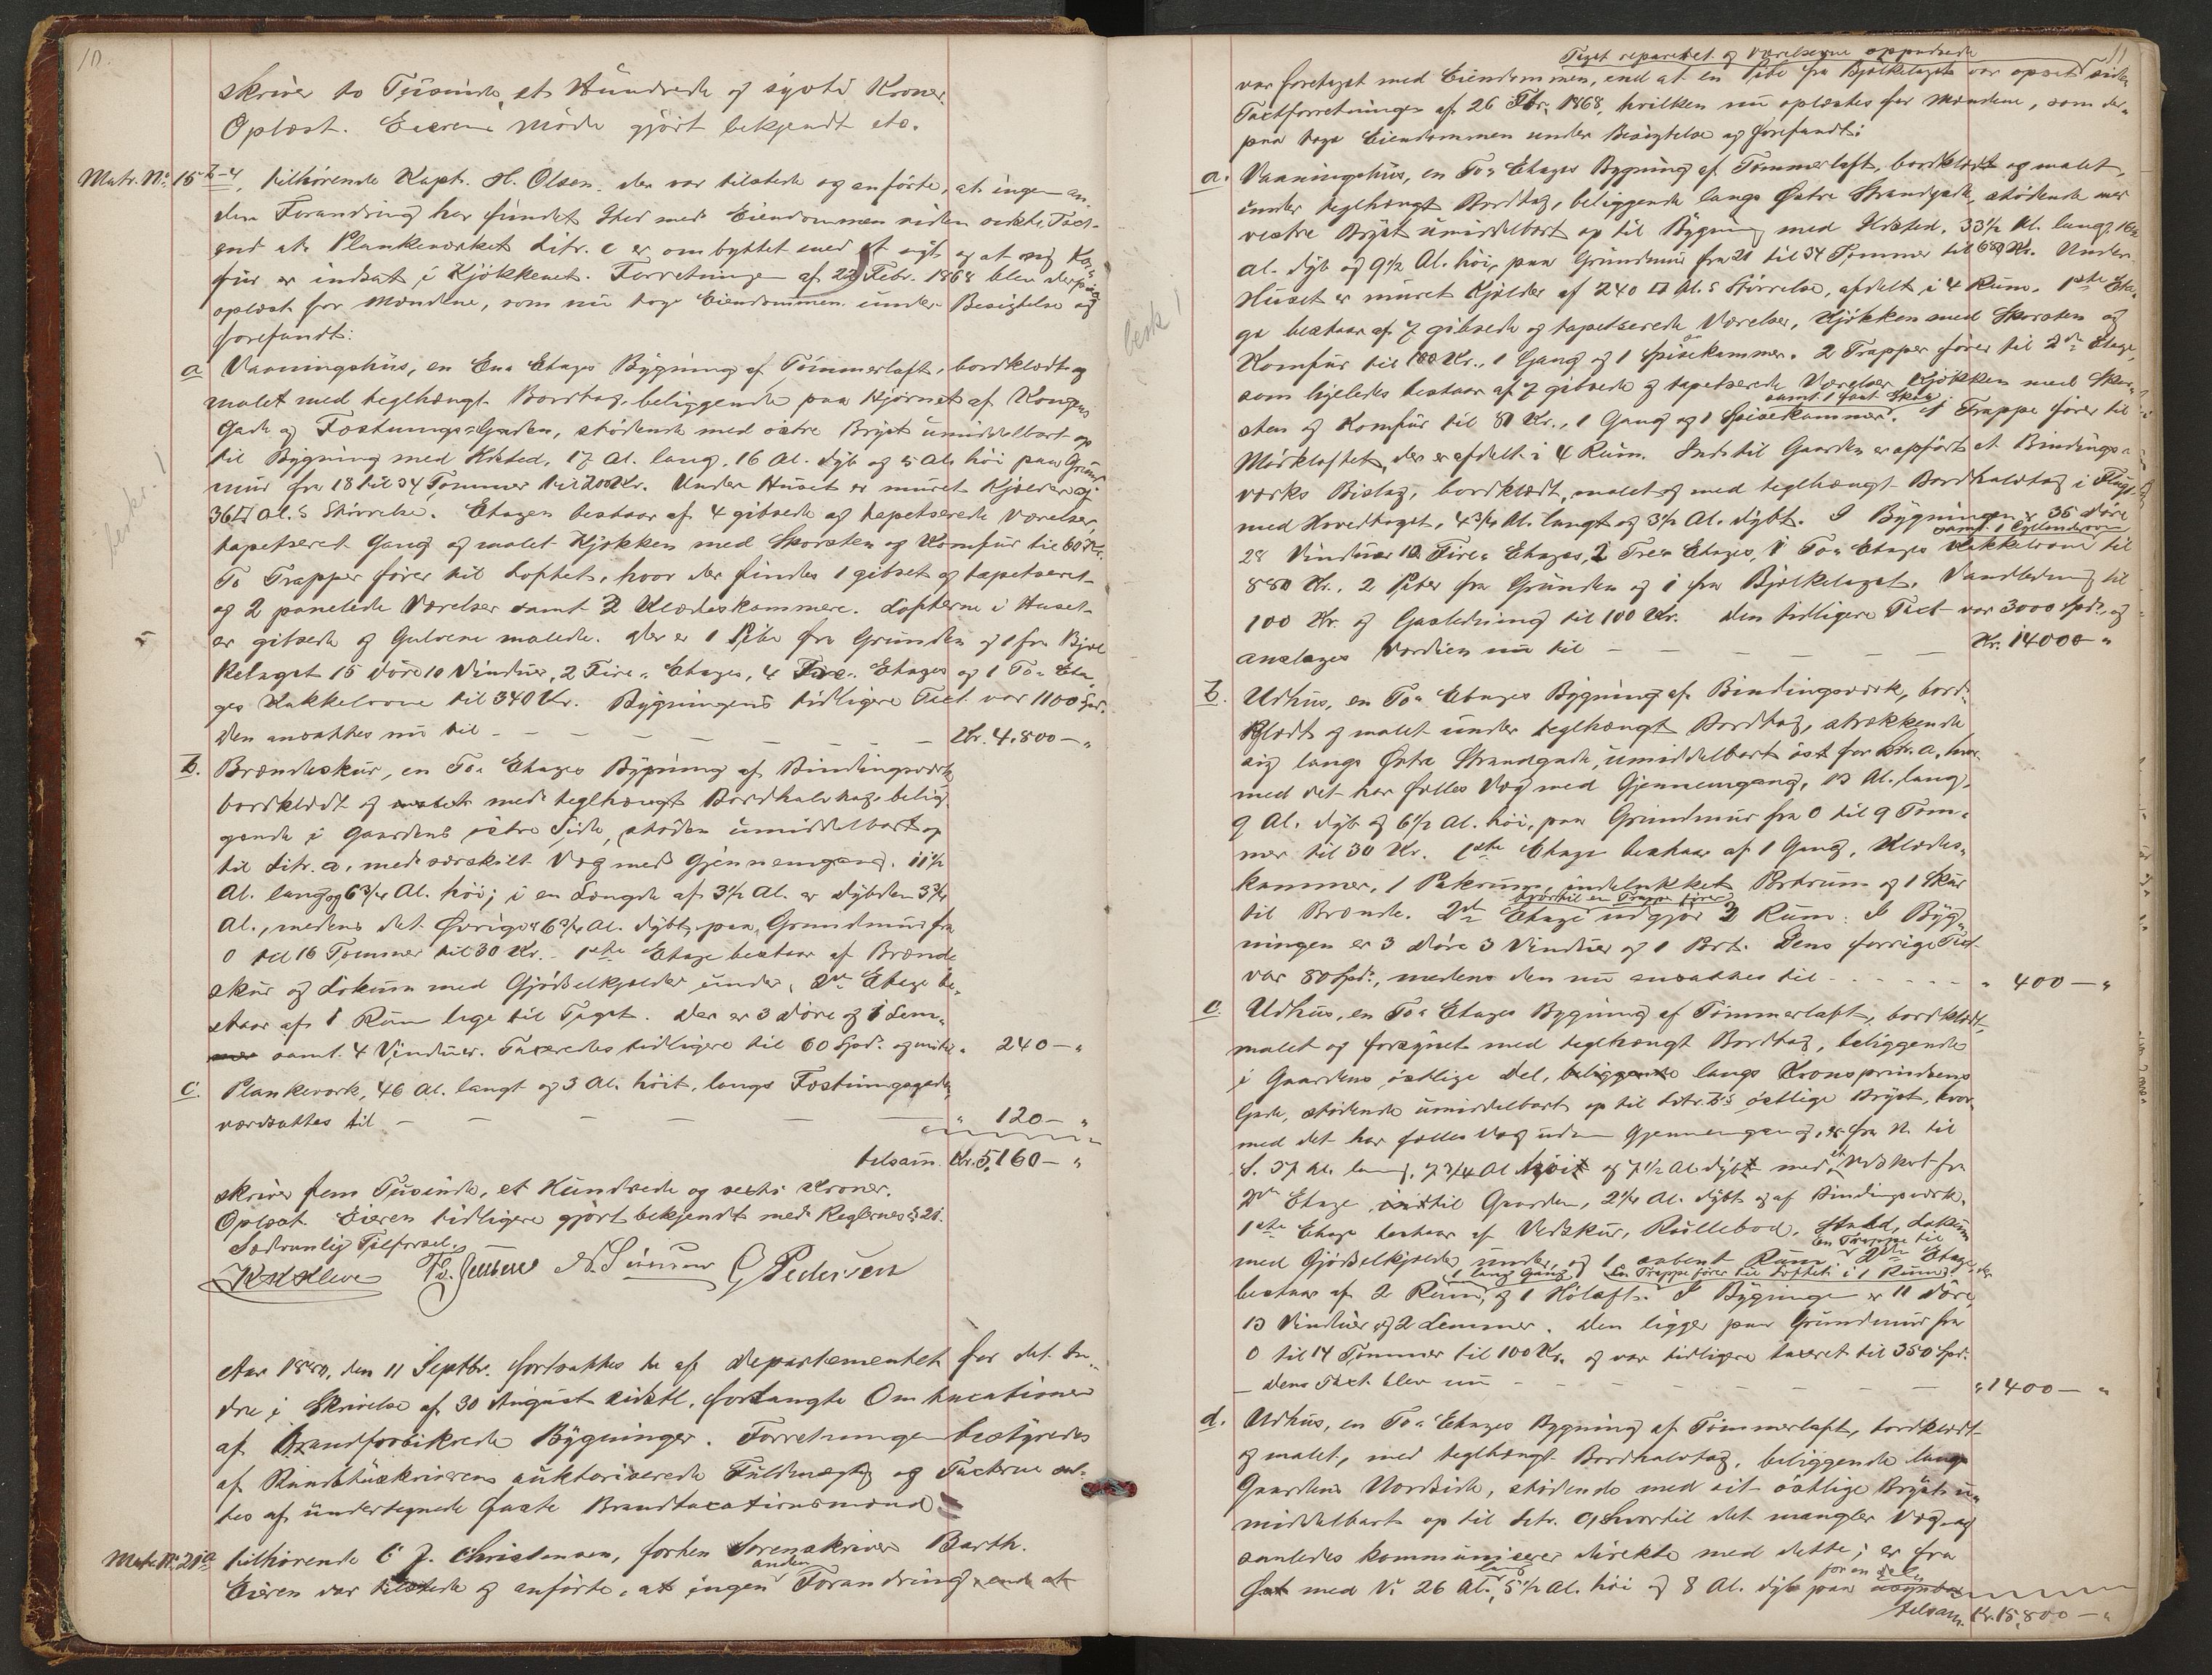 10.
skriver to Tusinde, et Hundrede og syvti Kroner.
Oplæst. Eierens Møde gjort bekjendt etc.
Matr. No. 15 b-4, tilhørende Kapt. H. Olsen. der var tilstede og anførte, at ingen an-
den Forandring har fundet Sted med Eiendommen siden sidste Taxt
end at Plankeværket Litr. c er ombyttet med et nyt og at nyt Kom-
fur er indsat i Kjøkkenet. Forretningen af 22 Febr. 1868 blev derpaa
oplæst for Mændene, som nu tog Eiendommen under Besigtelse og
forefandt:
a Vaaningshus, en Een Etages Bygning af Tømmerlaft, bordklædt og
malet med teglhængt Bordtag, beliggende paa Hjørnet af Konges
Gade og Fæstnings-Gaden, stødende med østre Bryst umiddelbart op
til Bygning med Ildsted, 17 Al. lang, 16 Al. dyb og 5 Al. høi paa Grund-
mur fra 18 til 34 Tommer til 200 Kr. Under Huset er muret Kjælder af
36 □ Al.s Størrelse. Etagen bestaar af 4 gibsede og tapetserede Værelser,
tapetseret Gang og malet Kjøkken med Skorsten og Komfur til 60 Kr.
To Trapper fører til Loftet, hvor der findes 1 gibset og tapetseret
og 2 panelede Værelser samt 2 Klædeskammere. Lofterne i Huset
er gibsede og Gulvene malede. Der er 1 Pibe fra Grunden og 1 fra Bjæl-
kelaget 15 Døre 10 Vinduer, 2 Fire- Etages, 4 Tre- Etages og 1 To- Eta-
ges Kakkelovne til 340 Kr. Bygningens tidligere Taxt var 1100 Spd.
den ansættes nu til — — — — — — Kr. 4,800 — "
b. Brændeskur, en To- Etages Bygning af Bindingsværk
bordklædt og malet med teglhængt Bordhalvtag, belig-
gende i Gaardens østre Side, støder umiddelbart op
til Litr. a, med særskilt Væg med Gjennemgang. 11½
Al. lang og 6¾ Al. høi; i en Længde af 3½ Al. er Dybden 3¾
Al., medens det Øvrige er 6¾ Al. dybt, paa Grundmur fra
0 til 16 Tommer til 30 Kr. 1ste Etage bestaar af Brænde
skur og Lokum med Gjødselkjælder under, 2den Etage be-
staar af 1 Rum lige til Taget. Der er 3 Døre og 1 Lem-
samt 4 Vinduer. Taxeredes tidligere til 60 Spd. og nu til " 240 — "
c. Plankeværk, 46 Al. langt og 3 Al. høit, langs Fæstningsgaden,
værdsættes til — — — — — — " 120 — "
tilsam. Kr. 5,160 — "
skriver fem Tusinde, et Hundrede og sexti Kroner.
Oplæst. Eieren tidligere gjort bekjendt med Reglernes § 21.
Sædvanlig Tilførsel.
G Pedersen
Aar 1880, den 11 Septbr. fortsattes de af Departementet for det In-
dre i Skrivelse af 30 August sidstl. forlangte Omtaxationer
af Brandforsikrede Bygninger. Forretningen bestyredes
af autoriserede Fuldmægtig og Taxterne sat-
tes af undertegnede faste Brandtaxationsmænd
Matr. No. 21a tilhørende C J. Christensen, forhen Sorenskriver Barth.
anden
Eieren var tilstede og anførte, at ingen Forandring end at
11
Taget repareret og Værelserne oppudsede
var foretaget med Eiendommen, end at en Pibe fra Bjælkelaget var opsat siden
Taxtforretningen af 26 Febr. 1868, hvilken nu oplæstes for Mændene, som der-
paa toge Eiendommen under Besigtelse og forefandt:
a. Vaaningshus, en To- Etages Bygning af Tømmerlaft, bordklædt og malet,
under teglhængt Bordtag, beliggende langs Østre Strandgade, stødende med
vestre Bryst umiddelbart op til Bygning med Ildsted, 33½ Al. lang, 16
Al. dyb og 9½ Al. høi, paa Grundmur fra 21 til 34 Tommer til 680 Kr. Under
Huset er muret Kjælder af 240 □ Al.s Størrelse, afdelt i 4 Rum. 1ste Eta-
ge bestaar af 7 gibsede og tapetserede Værelser, Kjøkken med Skorsten og
Komfur til 100 Kr., 1 Gang og 1 Spisekammer. 2 Trapper fører til 2den Etage,
som ligeledes bestaar af 7 gibsede og tapetserede Værelser, Kjøkken med Skor-
samt 1 fast Skab
sten og Komfur til 80 Kr., 1 Gang og 1 Spisekammer. 1 Trappe fører til
Mørkloftet, der er afdelt i 4 Rum. Ind til Gaarden er opført et Bindings-
værks Bislag, bordklædt, malet og med teglhængt Bordhalvtag i Flugt
med Hovedtaget, 4¾ Al. langt og 3½ Al. dybt. I Bygningen er 35 Døre
samt 1 Cylinderovn
28 Vinduer 10 Fire- Etages, 2 Tre- Etages, 1 To- Etages Kakkelovne til
880 Kr., 2 Piber fra Grunden og 1 fra Bjælkelaget. Vandledning til
100 Kr. og Gasledning til 100 Kr. Den tidligere Taxt var 3000 Spd. og
ansloges Værdien nu til — — — — — Kr. 14000 "
b. Udhus, en To- Etages Bygning af Bindingsværk, bord-
klædt og malet under teglhængt Bordtag, strækkende
sig langs Østre Strandgade, umiddelbart øst for Litr. a, hvor-
med det har fælles Væg med Gjennemgang, 13 Al. lang,
9 Al. dyb og 6½ Al. høi, paa Grundmur fra 0 til 9 Tom-
mer til 30 Kr. 1ste Etage bestaar af 1 Gang, Klædes-
kammer, 1 Pakrum, indelukket Portrum og 1 Skur
hvortil en Trappe fører
til Brænde. 2den Etage udgjør 3 Rum. I Byg-
ningen er 3 Døre 3 Vinduer og 1 Port. Dens forrige Taxt
var 80 Spd., medens den nu ansættes til - - - - - " 400 — "
c. Udhus, en To- Etages Bygning af Tømmerlaft, bordklædt,
malet og forsynet med teglhængt Bordtag, beliggende
i Gaardens østlige Del, beliggende langs Kronprindsens
Gade, stødende umiddelbart op til Litr. b's østlige Bryst, hvor-
med det har fælles Væg uden Gjennemgang, er fra N. til
S. 37 Al. lang, 7¾ Al høit og 7½ Al dybt med et Udskot fra
2den Etage ind til Gaarden, 2¼ Al. dybt og af Bindingsværk.
1ste Etage bestaar af Vedskur, Rullebod, Stald, Lokum
en Trappe til
med Gjødselkjælder under, og 1 aabent Rum. 2den Etage, der
1 lang Gang En Trappe fører til Loftet i 1 Rum
bestaar af 2 Rum, og 1 Høloft. I Bygningen er 11 Døre,
13 Vinduer og 2 Lemmer. Den ligger paa Grundmur fra
0 til 14 Tommer til 100 Kr. og var tidligere taxeret til 350 Spd.
— Dens Taxt blev nu - - - - - - " 1400 — "
d. Udhus, en To- Etages Bygning af Tømmerlaft, bordklædt
og malet, med teglhængt Bordhalvtag, beliggende langs
Gaardens Nordside, stødende med sit østlige Bryst u-
middelbart op til Litr. c, hvortil det mangler Væg og
saaledes kommuniserer direkte med dette; er fra
lang for en Del
Øst mod V. 26 Al., 5½ Al. høi og 8 Al. dyb paa usynbar
tilsam. Kr. 15,800 — "